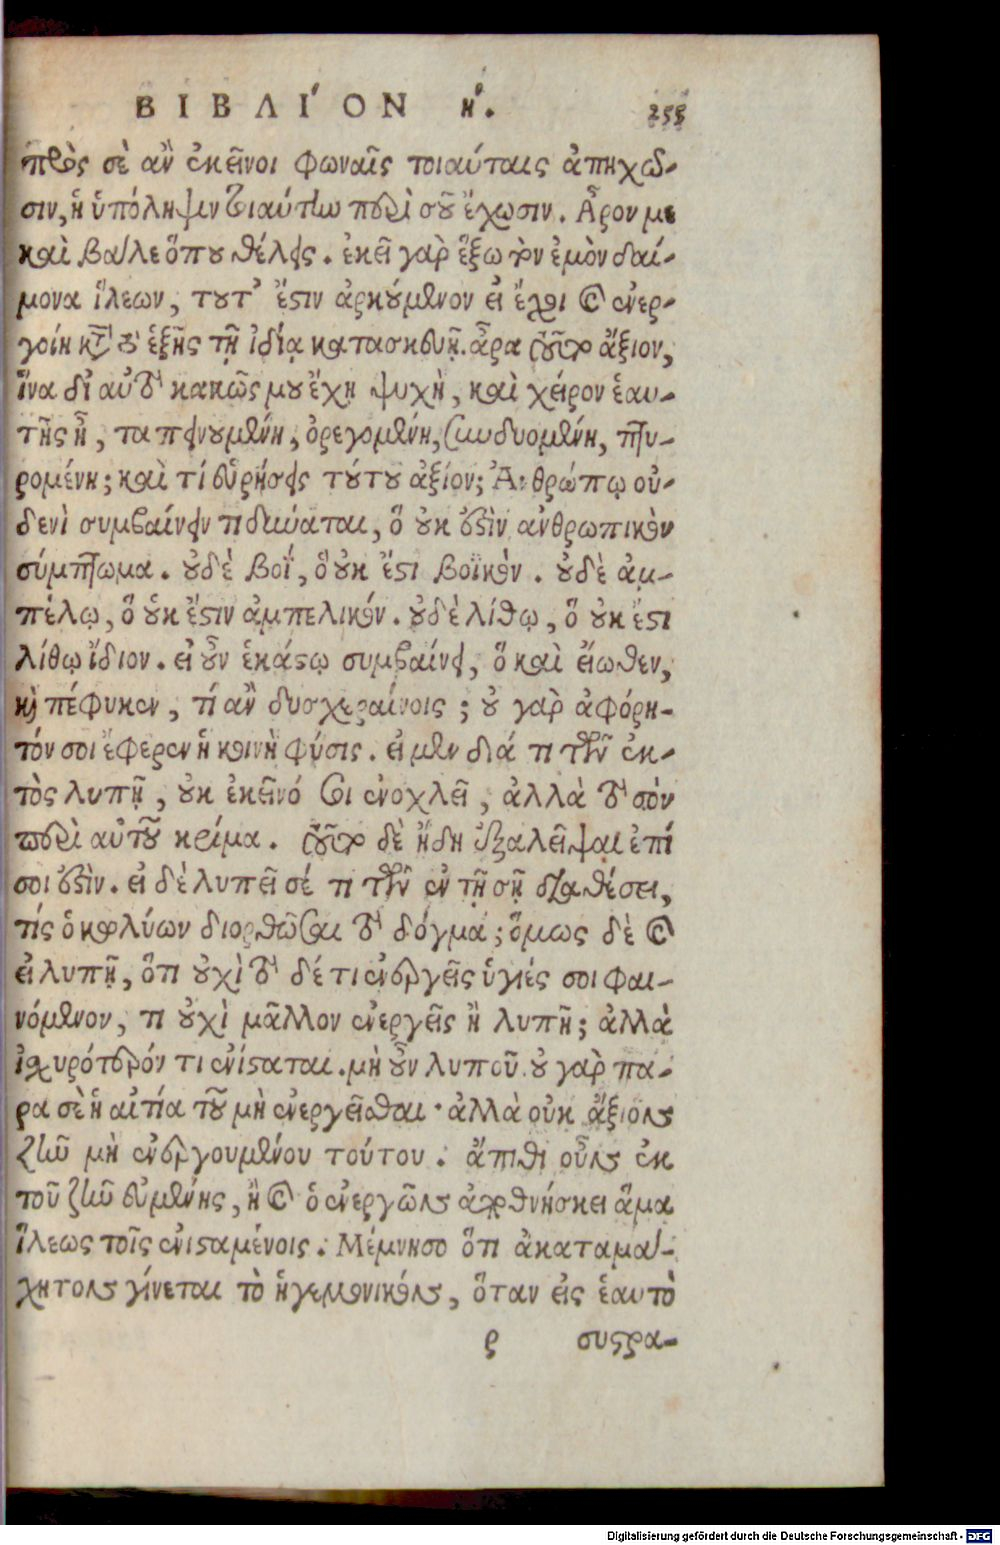 ΒΙΒΛΙ´ΟΝ η´. 255
πρὸς σὲ ἂν ἐκεῖνοι φωναῖς τοιαύταις ἀπηχῶ-
σιν, ἢ ὑπόληψιν τοιαύτην περὶ σοῦ ἔχωσιν. Ἆρον με
καὶ βάλε ὅπου θέλεις. ἐκεῖ γὰρ ἕξω τὸν ἐμὸν δαί-
μονα ἵλεων, τουτ' ἔστιν ἀρκούμενον εἰ ἔχοι καὶ ἐνερ-
γοίη κτ τὸ ἑξῆς τῇ ἰδίᾳ κατασκευῇ. ἆρα τοῦτο ἄξιον,
ἵνα δι αὐτὸ κακῶς μου ἔχη ψυχὴ, καὶ χείρον ἑαυ-
τῆς ᾖ, ταπεινουμένη, ὀρεγομένη, συνδυομένη, πτυ-
ρομένη; καὶ τί εὑρήσεις τούτου ἀξίον; Ἀνθρώπῳ οὐ-
δενὶ συμβαίνειν τι δύναται, ὅ οὐκ ἐστὶν ἀνθρωπικὸν
σύμπτωμα. οὐδὲ βοΐ, ὅ οὐκ ἔστι βοϊκὸν. οὐδὲ ἀμ-
πέλῳ, ὅ οὐκ ἔστιν ἀμπελικόν. οὐδὲ λίθῳ, ὅ οὐκ ἔστι
λίθῳ ἴδιον. εἰ οὖν ἑκάστῳ συμβαίνει, ὅ καὶ εἴωθεν,
καὶ πέφυκεν, τί ἂν δυσχεραίνοις; οὐ γὰρ ἀφόρη-
τόν σοι ἔφερεν ἡ κοινὴ φύσις. εἰ μὲν διά τι τῶν ἐκ-
τὸς λυπῇ, οὐκ ἐκεῖνό σοι ἐνοχλεῖ, ἀλλὰ τὸ σὸν
περὶ αὐτοῦ κρίμα. τοῦτο δὲ ἤδη ἐξαλεῖψαι ἐπί
σοι ἐστὶν. εἰ δὲ λυπεῖ σέ τι τῶν ἐν τῇ σῇ διαθέσει,
τίς ὁ κωλύων διορθῶσαι τὸ δόγμα; ὅμως δὲ καὶ
εἰ λυπῇ, ὅτι οὐχὶ τὸ δέ τι ἐνεργεῖς ὑγιές σοι φαι-
νόμενον, τι οὐχὶ μᾶλλον ἐνεργεῖς ἢ λυπῇ; ἀλλὰ
ἰσχυρότερόν τι ἐνίσταται. μὴ οὖν λυποῦ. οὐ γὰρ πα-
ρα σὲ ἡ αἰτία τοῦ μὴ ἐνεργεῖσθαι· ἀλλὰ οὐκ ἄξιον
ζῆν μὴ ἐνεργουμένου τούτου. ἄπιθι οὖν ἐκ
τοῦ ζῆν εὐμενής, ᾗ καὶ ὁ ἐνεργῶν ἀποθνήσκει ἅμα
ἵλεως τοῖς ἐνισταμένοις. Μέμνησο ὅτι ἀκαταμά-
χητον γίνεται τὸ ἡγεμονικόν, ὅταν εἰς ἑαυτὸ
ρ συστρα-
Digitalisierung gefördert durch die Deutsche Forschungsgemeinschaft - DFG